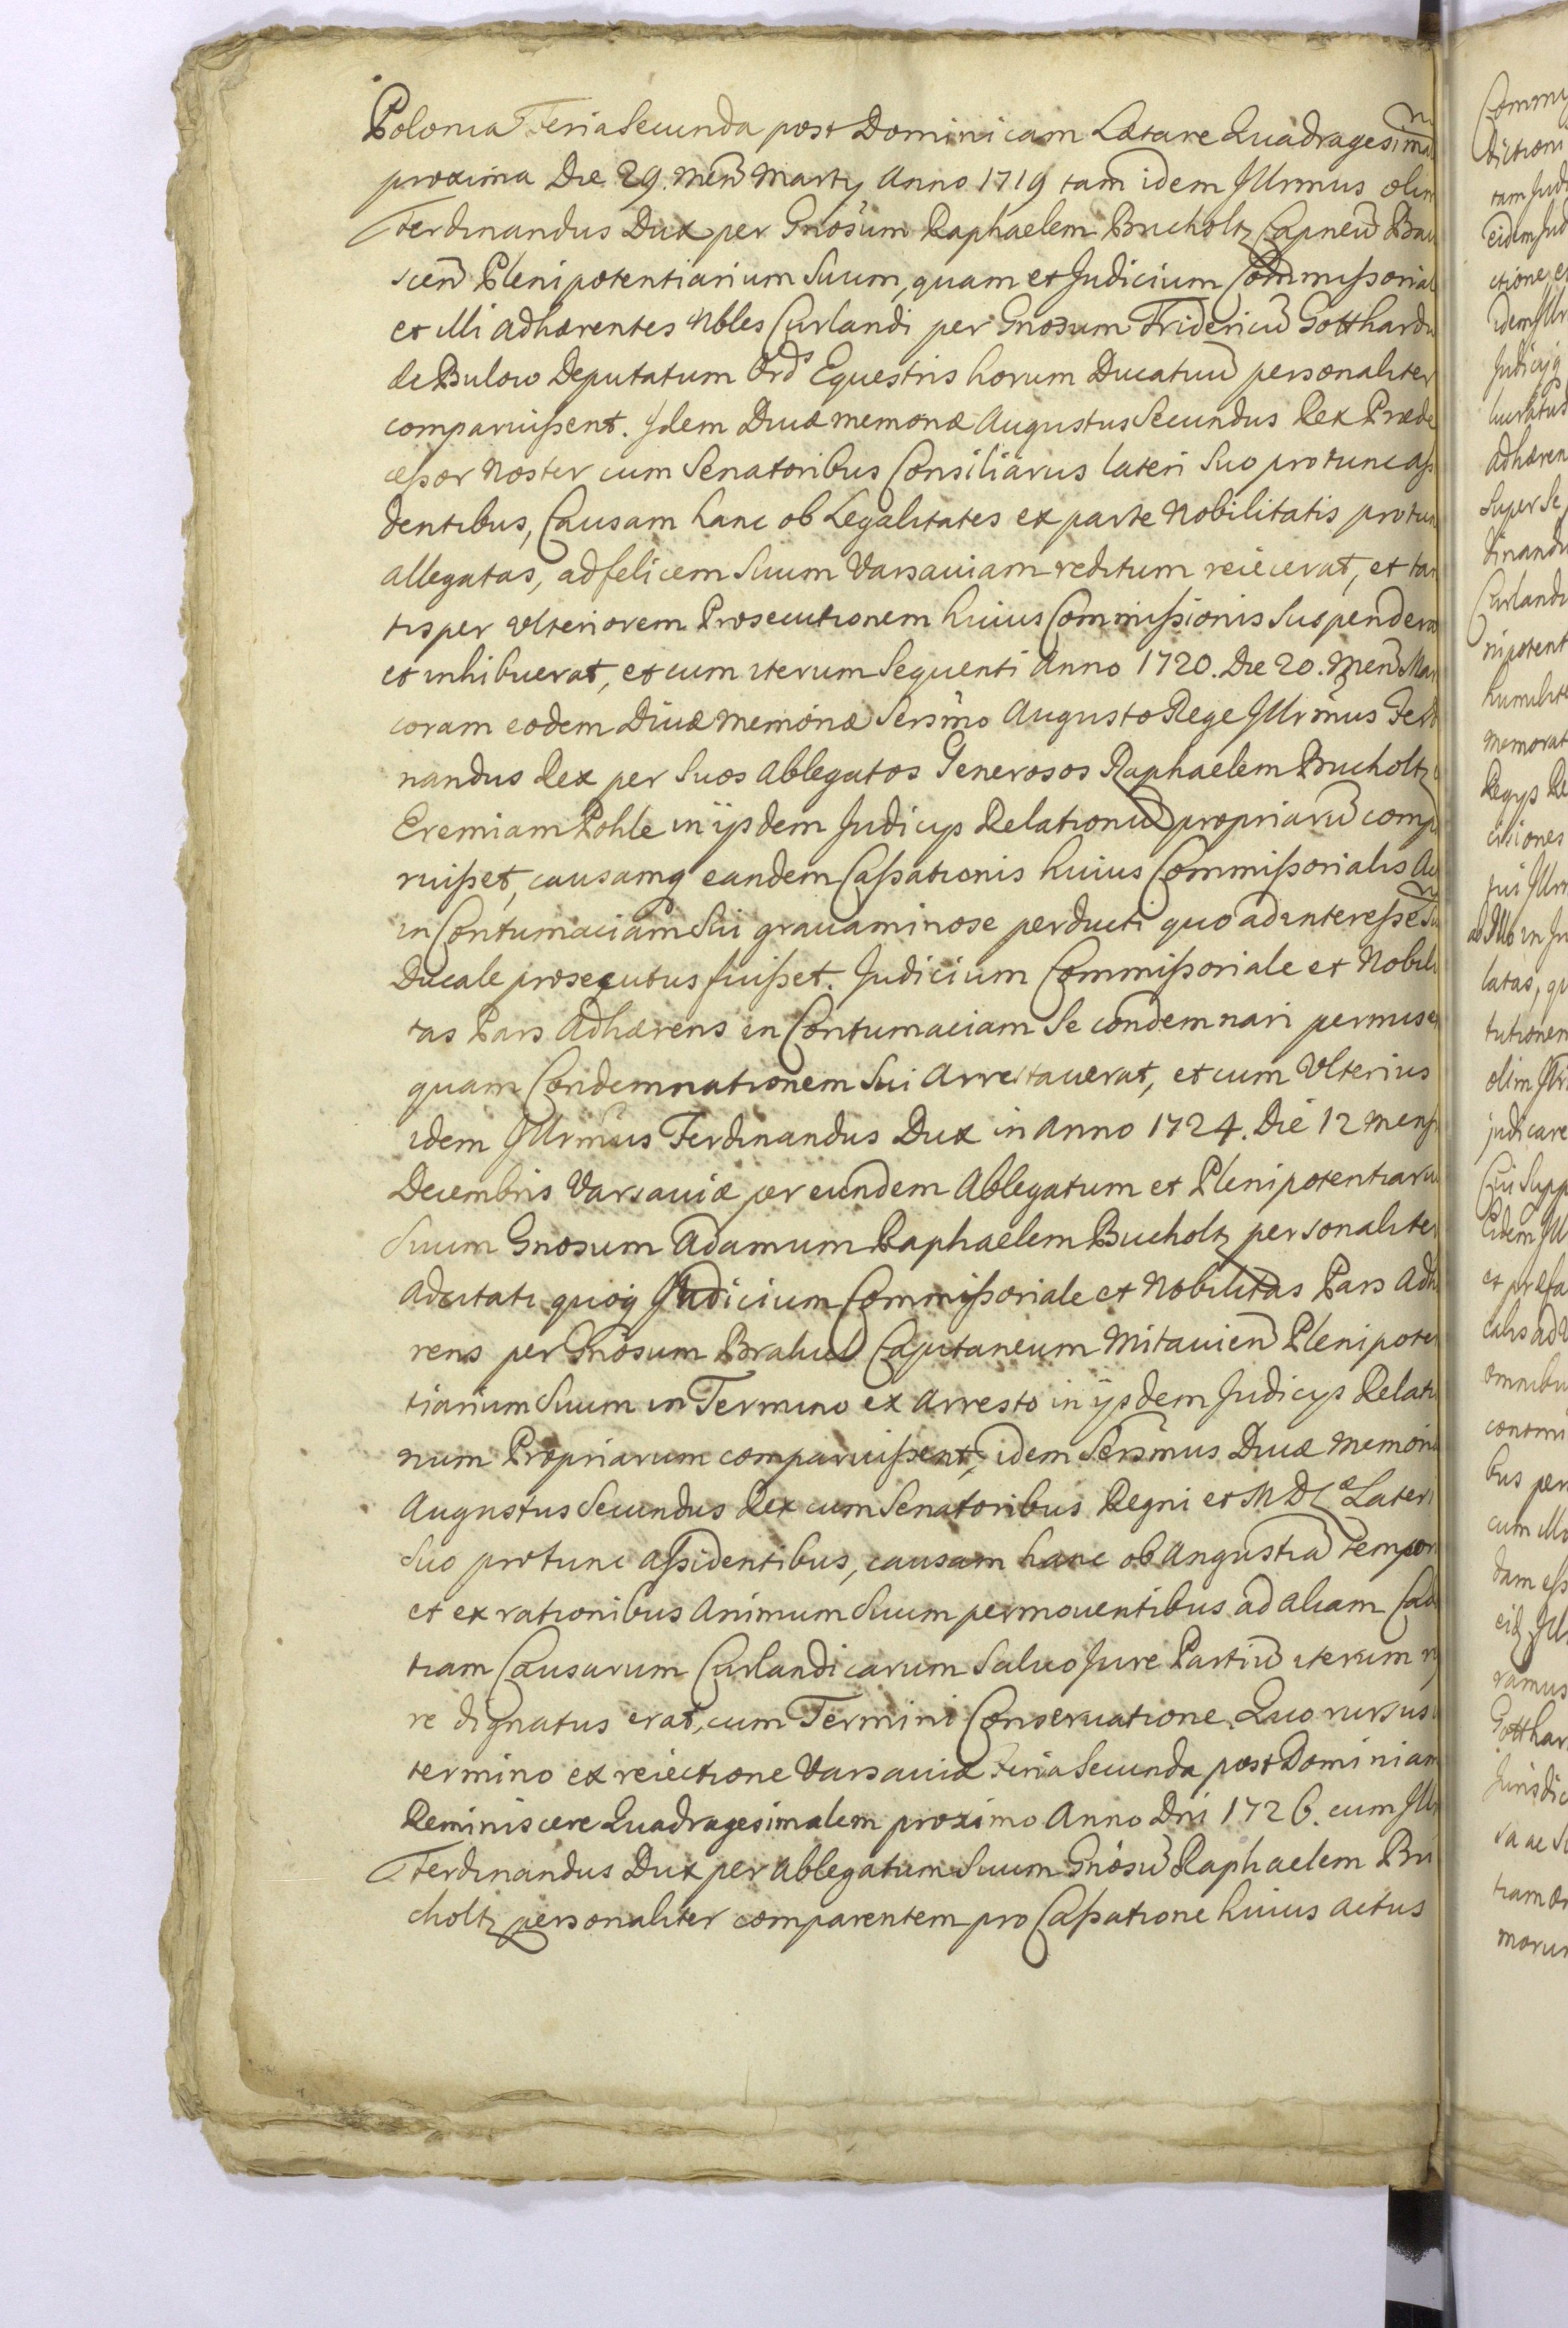 Polonia Feria Secunda post Dominicam Lætare Quadragesima
proxima Die 29. Men Martij Anno 1719 tam idem Jllrmus olim
Ferdinandus Dux per Gnosum Raphaelem Bucholtz Capneu Bau
scen Plenipotentiarium Suum, quam et Judicium Commissorial
et illi adhærentes Nbles Curlandi per Gnosum Fridericu Gotthardu
de Bulow Deputatum Ords Equestris horum Ducatuu personaliter
comparuissent. Jdem Divæ memoriæ Augustus Secundus Rex Præde
cessor Noster cum Senatoribus Consiliarijs lateri Suo protunc assi
dentibus, Causam hanc ob Legalitates ex parte Nobilitatis protun
allegatas, ad felicem Suum Varsaviam reditum reiecerat, et tan
tisper ulteriorem Prosecutionem huius Commissionis Suspendera
et inhibuerat, et cum iterum Sequenti Anno 1720. Die 20. Men Mar
coram eodem Divæ memoriæ Sersmo Augusto Rege Jllrmus Ferdi
nandus Rex per Suos Ablegatos Generosos Raphaelem Bucholtz
Eremiam Pohle in ijsdem Judicijs Relationu propriaru comp
ruisset, causamq eandem Cassationis huius Commissorialis Ac
in Contumaciam Sui gravaminose perducti quo ad interesse Su
Ducale prosecutus fuisset. Judicium Commissoriale et Nobili
tas Pars Adhærens in Contumaciam Se condemnari permise
quam Condemnationem Sui Arrestaverat, et cum Ulterius
idem Jllrmus Ferdinandus Dux in Anno 1724. Die 12 Mens
Decembris Varsaviæ per eundem Ablegatum et Plenipotentiariu
Suum Gnosum Adamum Raphaelem Bucholtz personaliter
Adcitati quoq Judicium Commissoriale et Nobilitas Pars Adhæ
rens per Gnosum Brahel Capitaneum Mitavien Plenipoten
tiarium Suum in Termino ex Arresto in ijsdem Judicijs Relati
num Propriarum comparuissent, idem Sersmus Divæ Memoriæ
Augustus Secundus Rex cum Senatoribus Regni et M D L Lateri
Suo protunc Assidentibus, causam hanc ob Angustia Tempor
et ex rationibus Animum Suum permoventibus ad aliam Cad
tiam Causarum Curlandicarum Salvo Jure Partiu iterum r
re dignatus erat, cum Termini Conservatione. Quo rursus
termino ex reiectione Varsaviæ Feria Secunda post Dominiam
Reminiscere Quadragesimalem proximo Anno Dni 1726. cum Jllr
Ferdinandus Dux per Ablegatum Suum Gnosu Raphaelem Bu
choltz personaliter comparentem pro Cassatione huius actus